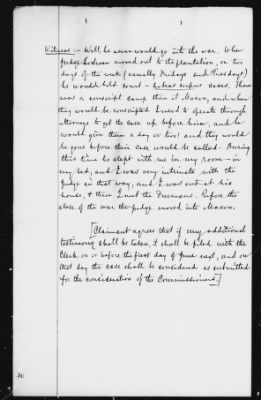 Witness:— Well, he never would go into the war. When
Judge moved out to the plantation, on two
days of the week (usually Fridays and Tuesdays)
he would hold court — habeas corpus cases. There
was a conscript camp then at Macon, and when
they would be conscripted I used to operate through
attorneys to get the case up before him, and he
would give them a day or two and they would
be gone before their case would be called. During
this time he slept with me in my room — in
my bed, and I was very intimate with the
Judge in that way, and I was out at his
house, & then I met the Freemans. Before the
close of the war the Judge moved into Macon.
[Claimant agrees that if any additional
testimony shall be taken, it shall be filed with the
Clerk on or before the first day of June next, and on
that day the case shall be considered as submitted
for the consideration of the Commissioners.]